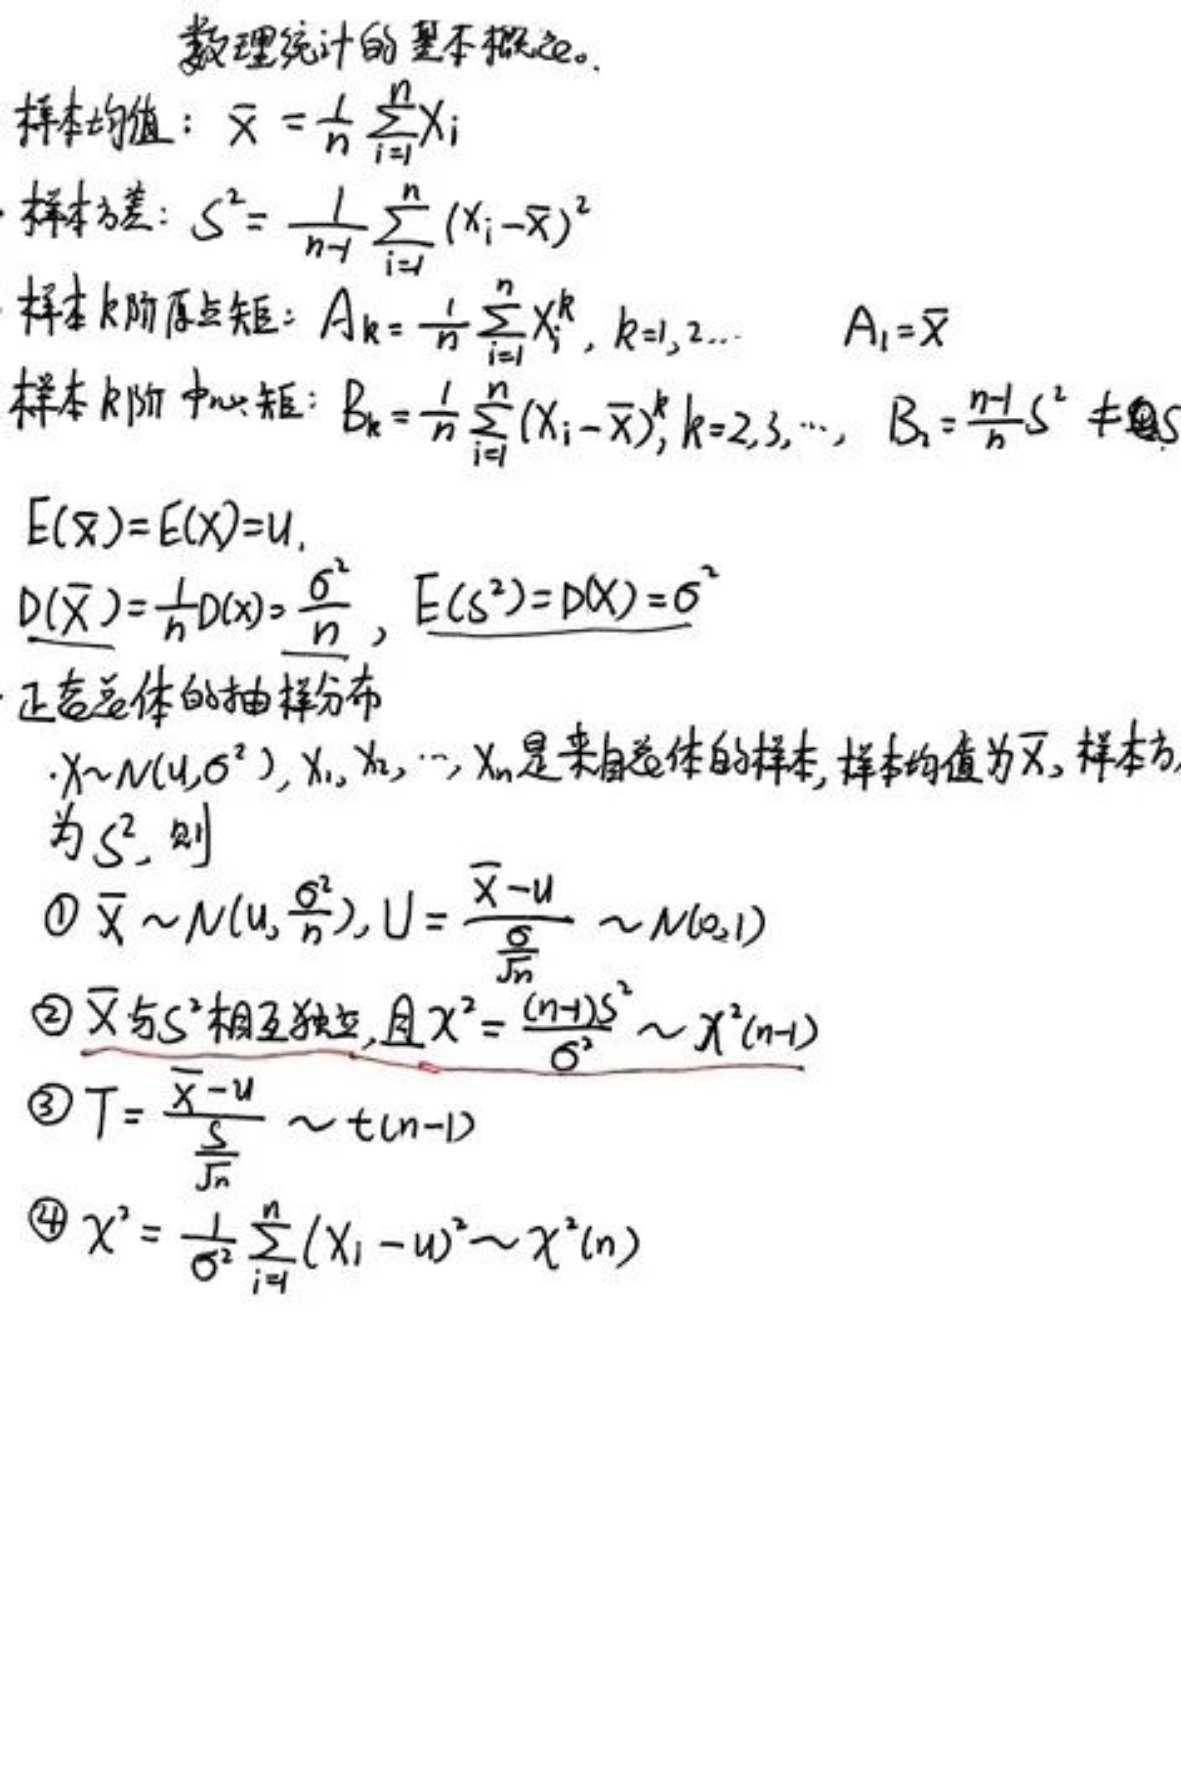 数理统计的基本概念。
样本均值: X̄ = 1/n ∑_{i=1}^{n} X_i
· 样本方差: S² = 1/(n-1) ∑_{i=1}^{n} (X_i - X̄)²
· 样本k阶原点矩: A_k = 1/n ∑_{i=1}^{n} X_i^k, k=1,2… A₁ = X̄
样本k阶中心矩: B_k = 1/n ∑_{i=1}^{n} (X_i - X̄)^k, k=2,3,…, B₂ = (n-1)/n S² ≠ S
E(X̄) = E(X) = u.
D(X̄) = 1/n D(X) = σ²/n, E(S²) = D(X) = σ²
· 正态总体的抽样分布
· X~N(u,σ²), X₁, X₂, …, Xₙ是来自总体的样本, 样本均值为X̄, 样本方
为S², 则
① X̄ ~ N(u, σ²/n), U = (X̄-u)/(σ/√n) ~ N(0,1)
② X̄与S²相互独立, 且χ² = (n-1)S²/σ² ~ χ²(n-1)
③ T = (X̄-u)/(S/√n) ~ t(n-1)
④ χ² = 1/σ² ∑_{i=1}^{n} (X_i - u)² ~ χ²(n)